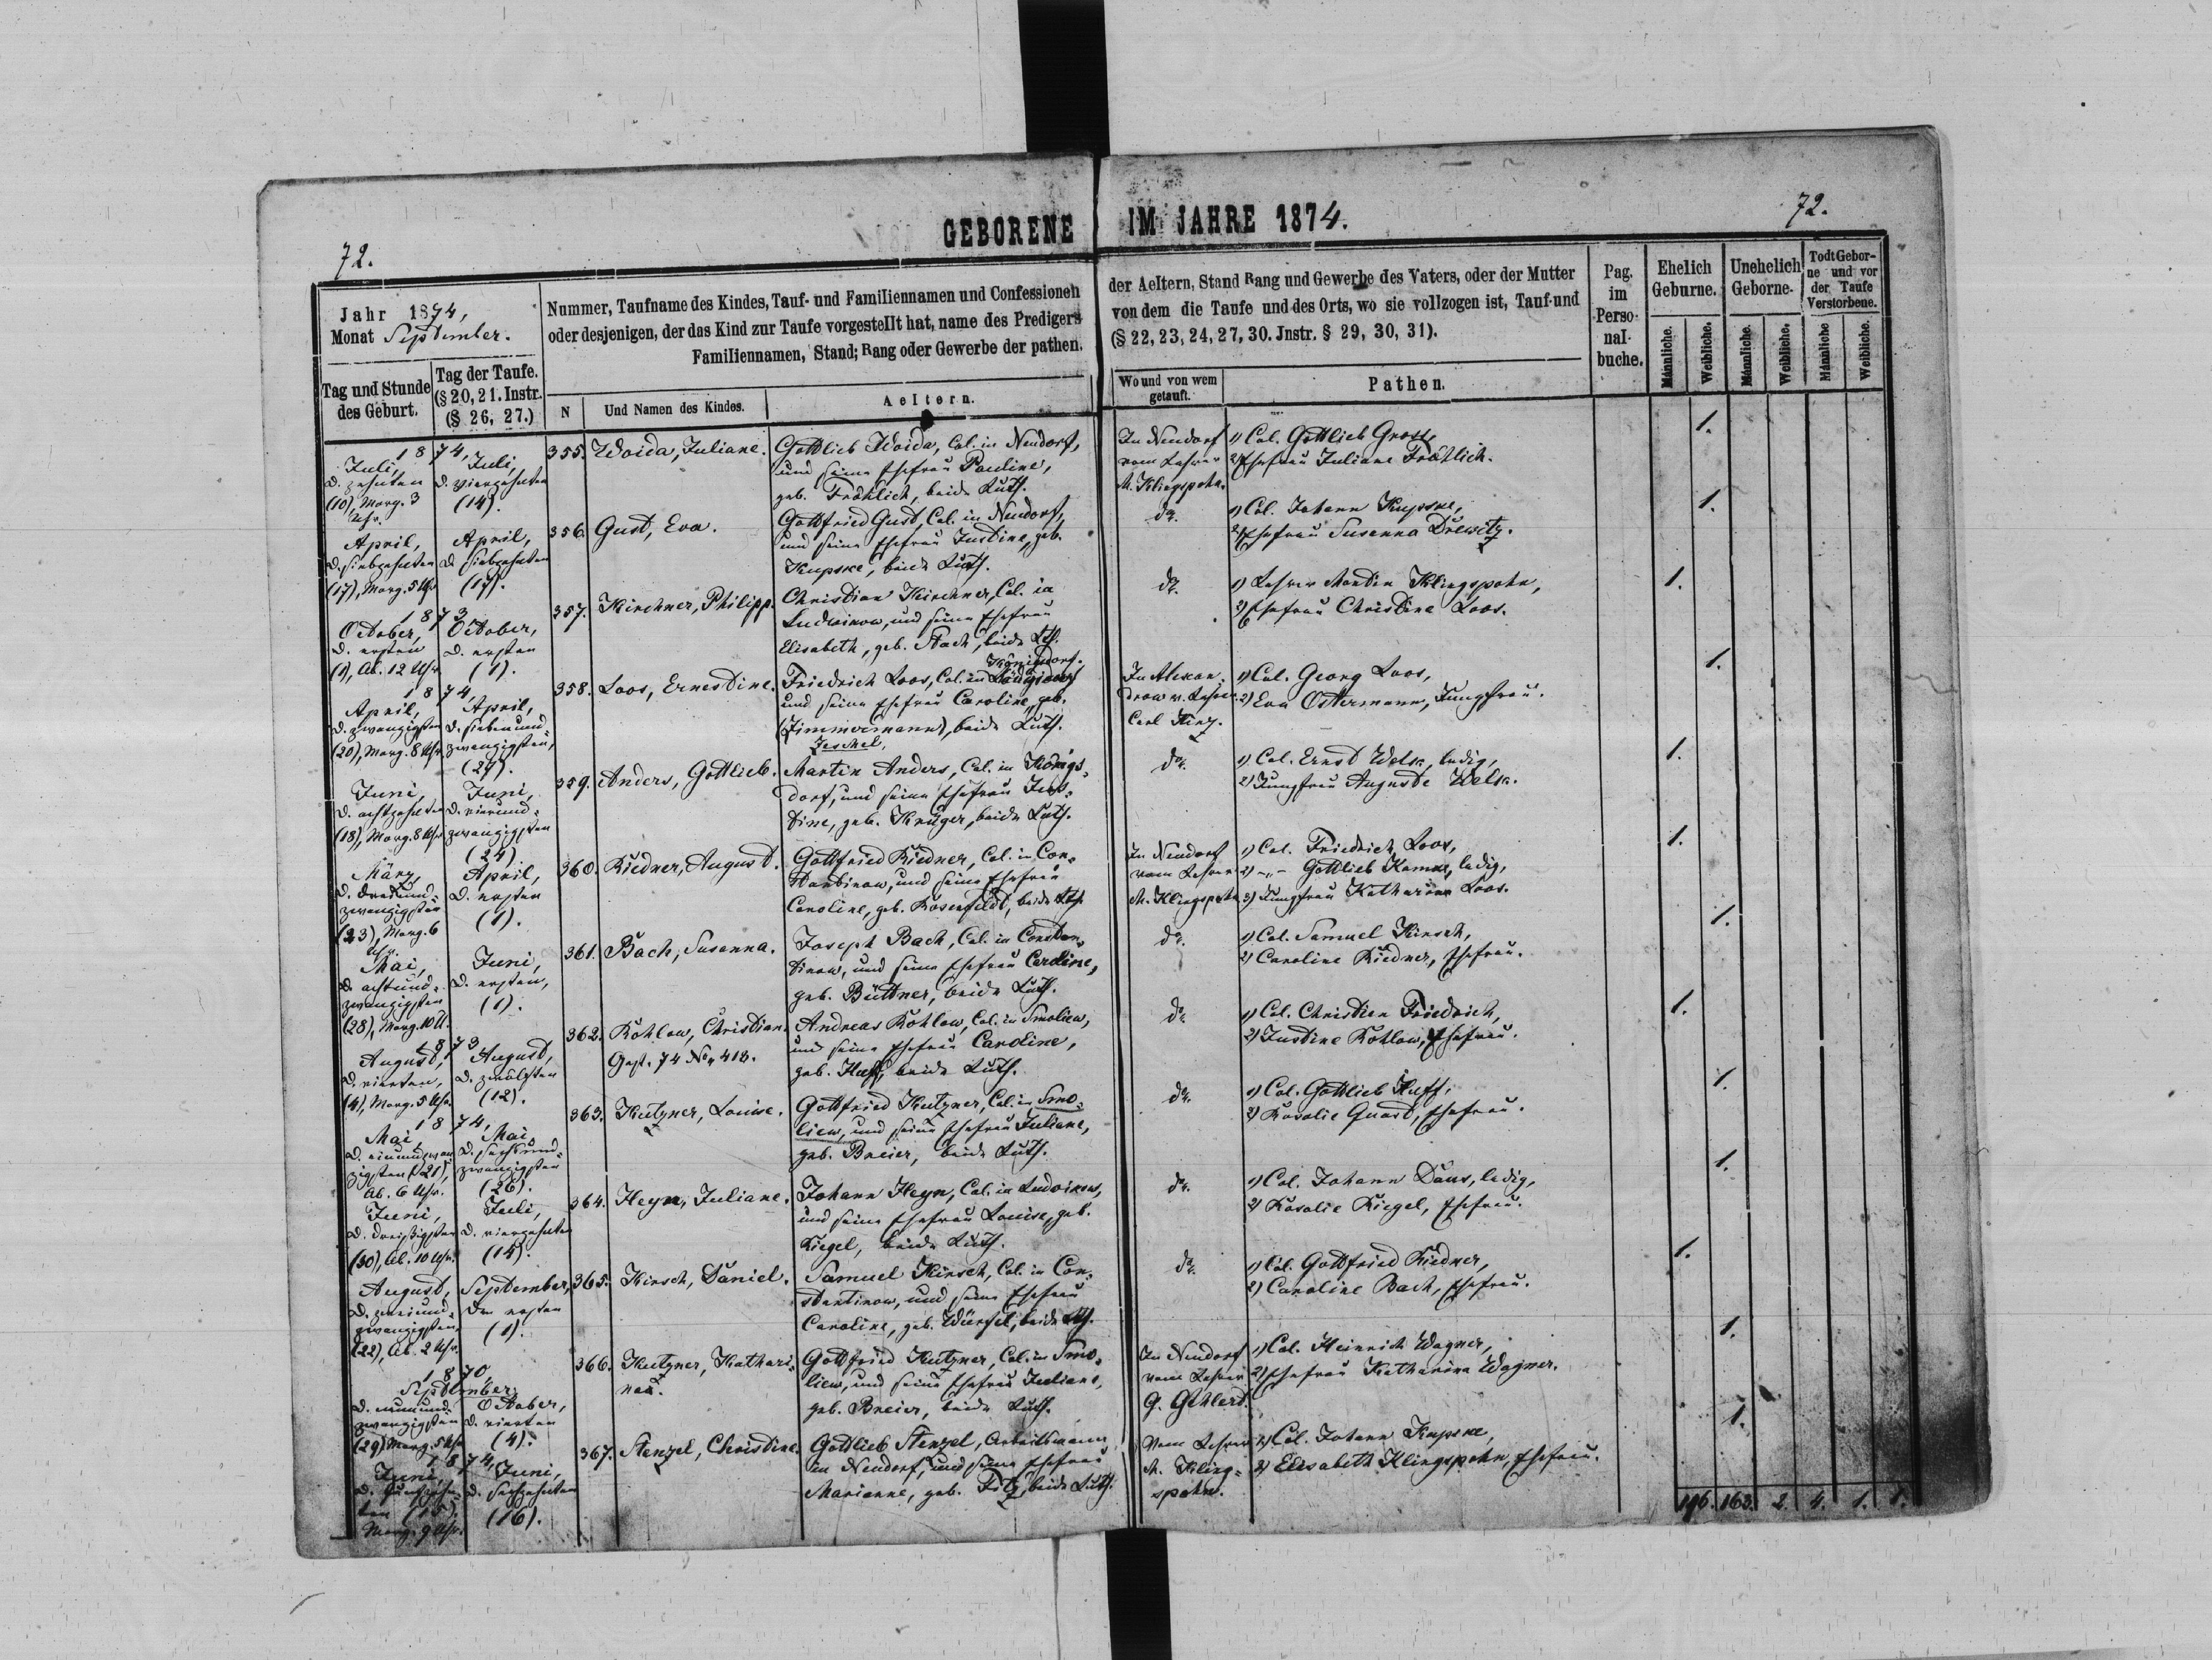 72.
GEBORENE IM JAHRE 1874.
72.
Jahr 1874,
Monat September.
Tag und Stunde
des Geburt.
Tag der Taufe.
(§ 20, 21. Instr.
(§ 26, 27.)
Nummer, Taufname des Kindes, Tauf- und Familiennamen und Confessioneh
oder desjenigen, der das Kind zur Taufe vorgestellt hat, name des Predigers
Familiennamen, Stand; Rang oder Gewerbe der pathen.
N
Und Namen des Kindes.
Aeltern.
der Aeltern, Stand Rang und Gewerbe des Vaters, oder der Mutter
von dem die Taufe und des Orts, wo sie vollzogen ist, Tauf-und
(§ 22, 23, 24, 27, 30. Jnstr. § 29, 30, 31).
Wo und von wem
getauft.
Pathen.
Pag.
im
Perso-
nal-
buche.
Ehelich
Geburne.
Unehelich
Geborne.
Todt Gebor-
ne und vor
der Taufe
Verstorbene.
Männliche.
Weibliche.
Männliche.
Weibliche.
Männliche
Weibliche.
1874,
Juli,
d. zehnten
(10), Morg. 3
Uhr.
Juli,
d. vierzehnten
(14).
355. Woida, Juliane.
Gottlieb Woida, Col. in Neudorf,
und seine Ehefrau Pauline,
geb. Fröhlich, beide Luth.
In Neudorf
vom Lehrer
M. Klingspohn.
1) Col. Gottlieb Gross,
2) Ehefrau Juliane Frötlich.
1.
April,
d. siebzehnten
(17), Morg. 5 Uhr
April,
d. siebzehnten
(17).
356. Gust, Eva.
Gottfried Gust, Col. in Neudorf,
und seine Ehefrau Justine, geb.
Kupske, beide Luth.
do.
1) Col. Johann Kupske,
2) Ehefrau Susanna Drewitz.
1.
1873
October,
d. ersten
(1), Ab. 12 Uhr.
October,
d. ersten
(1).
357. Kirchner, Philipp.
Christian Kirchner, Col. in
Ludwinow, und seine Ehefrau
Elisabeth, geb. Bach, beide Lth.
do.
1) Lehrer Martin Klingspohn,
2) Ehefrau Christine Loos.
1.
1874,
April,
d. zwanzigsten
(20), Morg. 8 Uhr
April,
d. siebenund-
zwanzigsten,
(27).
358. Loos, Ernestine.
Königsdorf.
Friedrich Loos, Col. in
und seine Ehefrau Caroline, geb.
(Zimmermann), beide Luth.
Jeschel.
In Alexan-
drow v. Lehrer
Carl Kinz.
1) Col. Georg Loos,
2) Eva Ostermann, Jungfrau.
1.
Juni,
d. achtzehnten
(18), Morg. 8 Uhr
Juni,
d. vierund-
zwanzigsten
(24).
359. Anders, Gottlieb.
Martin Anders, Col. in Königs-
dorf, und seine Ehefrau Jus-
tine, geb. Krüger, beide Luth.
do.
1) Col. Ernst Welk, ledig,
2) Jungfrau Auguste Welk.
1.
März,
d. dreiund-
zwanzigsten
(23), Morg. 6
Uhr.
April,
d. ersten
(1).
360. Riedner, August.
Gottfried Riedner, Col. in Con-
stantinow, und seine Ehefrau
Caroline, geb. Rosenfeldt, beide Lth.
In Neudorf
vom Lehrer
M. Klingspohn
1) Col. Friedrich Loos,
2) -"- Gottlieb , ledig,
3) Jungfrau Katharina Loos.
1.
Mai,
d. achtund-
zwanzigsten
(28), Morg. 10 U.
Juni,
d. ersten,
(1).
361. Bach, Susanna.
Joseph Bach, Col. in Constan-
tinow, und seine Ehefrau Caroline,
geb. Büttner, beide Luth.
do.
1) Col. Samuel Hirsch,
2) Caroline Riedner, Ehefrau.
1.
1873
August,
d. vierten,
(4), Morg. 5 Uhr.
August,
d. zwölften
(12).
362. Kohlow, Christian.
Gest. 74 No 418.
Andreas Kohlow, Col. in Smoliew,
und seine Ehefrau Caroline,
geb. Huff, beide Luth.
do.
1) Col. Christian Friedrich,
2) Justine Kohlow, Ehefrau.
1.
1874,
Mai,
d. einundzwan-
zigsten (21),
Ab. 6 Uhr.
Mai,
d. sechsund-
zwanzigsten
(26).
363. Kutzner, Louise.
Gottfried Kutzner, Col. in Smo-
liew, und seine Ehefrau Juliane,
geb. Breier, beide Luth.
do.
1) Col. Gottlieb Huff,
2) Rosalie Quast, Ehefrau.
1.
Juni,
d. dreißigsten
(30), Ab. 10 Uhr.
Juli,
d. vierzehnten
(14).
364. Heyn, Juliane.
Johann Heyn, Col. in Ludwinow,
und seine Ehefrau Louise, geb.
Riegel, beide Luth.
do.
1) Col. Johann Daus, ledig,
2) Rosalie Riegel, Ehefrau.
1.
August,
d. zweiund-
zwanzigsten,
(22), Ab. 2 Uhr.
September,
den ersten
(1).
365. Hirsch, Daniel.
Samuel Hirsch, Col. in Con-
stantinow, und seine Ehefrau
Caroline, geb. Würfel, beide Lth.
do.
1) Col. Gottfried Riedner,
2) Caroline Bach, Ehefrau.
1.
1870.
September,
d. neunund-
zwanzigsten
(29) Morg. 5 Uhr
October,
d. vierten
(4).
366. Kutzner, Kathari-
na.
Gottfried Kutzner, Col. in Smo-
liew, und seine Ehefrau Juliane,
geb. Breier, beide Luth.
In Neudorf
vom Lehrer
G. Gehlert.
1) Col. Heinrich Wagner,
2) Ehefrau Katharina Wagner.
1.
1874,
Juni,
d. fünfzehn-
ten (15).
Morg. 9 Uhr.
Juni,
d. sechzehnten
(16).
367. Stenzel, Christine.
Gottlieb Stenzel, Arbeitsmann
in Neudorf, und seine Ehefrau
Marianne, geb. Fitz, beide Luth.
Vom Lehrer
M. Kling-
spohn.
1) Col. Johann Kupske,
2) Elisabeth Klingspohn, Ehefrau.
1.
196. 163. 2. 4. 1. 1.